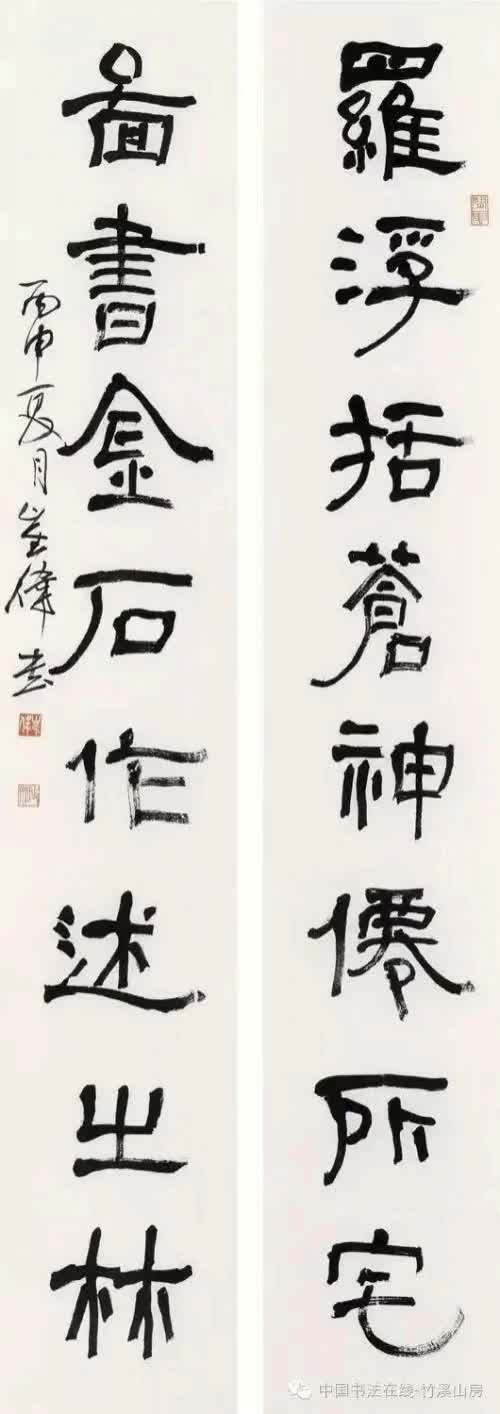 羅浮括蒼神僊所宅
圖書金石作述之林
丙申夏月崔偉書
中国书法在线-竹溪山房